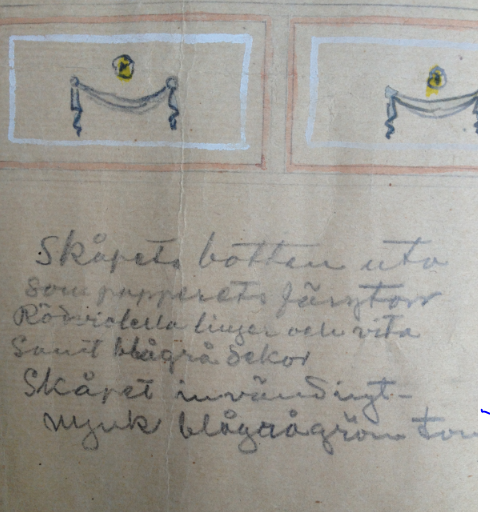 Skåpets botten uta
som papperets färgton
Rödvioletta linjer och vita
samt blågrå dekor
Skåpet invändigt -
mjuk blågrågrön ton